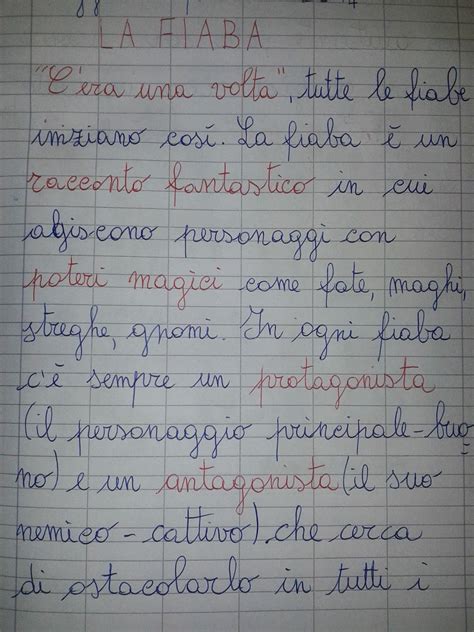 LA FIABA
"C'era una volta", tutte le fiabe
iniziano così. La fiaba è un
racconto fantastico in cui
agiscono personaggi con
poteri magici come fate, maghi,
streghe, gnomi. In ogni fiaba
c'è sempre un protagonista
(il personaggio principale-buo
no) e un antagonista (il suo
nemico - cattivo), che cerca
di ostacolarlo in tutti i